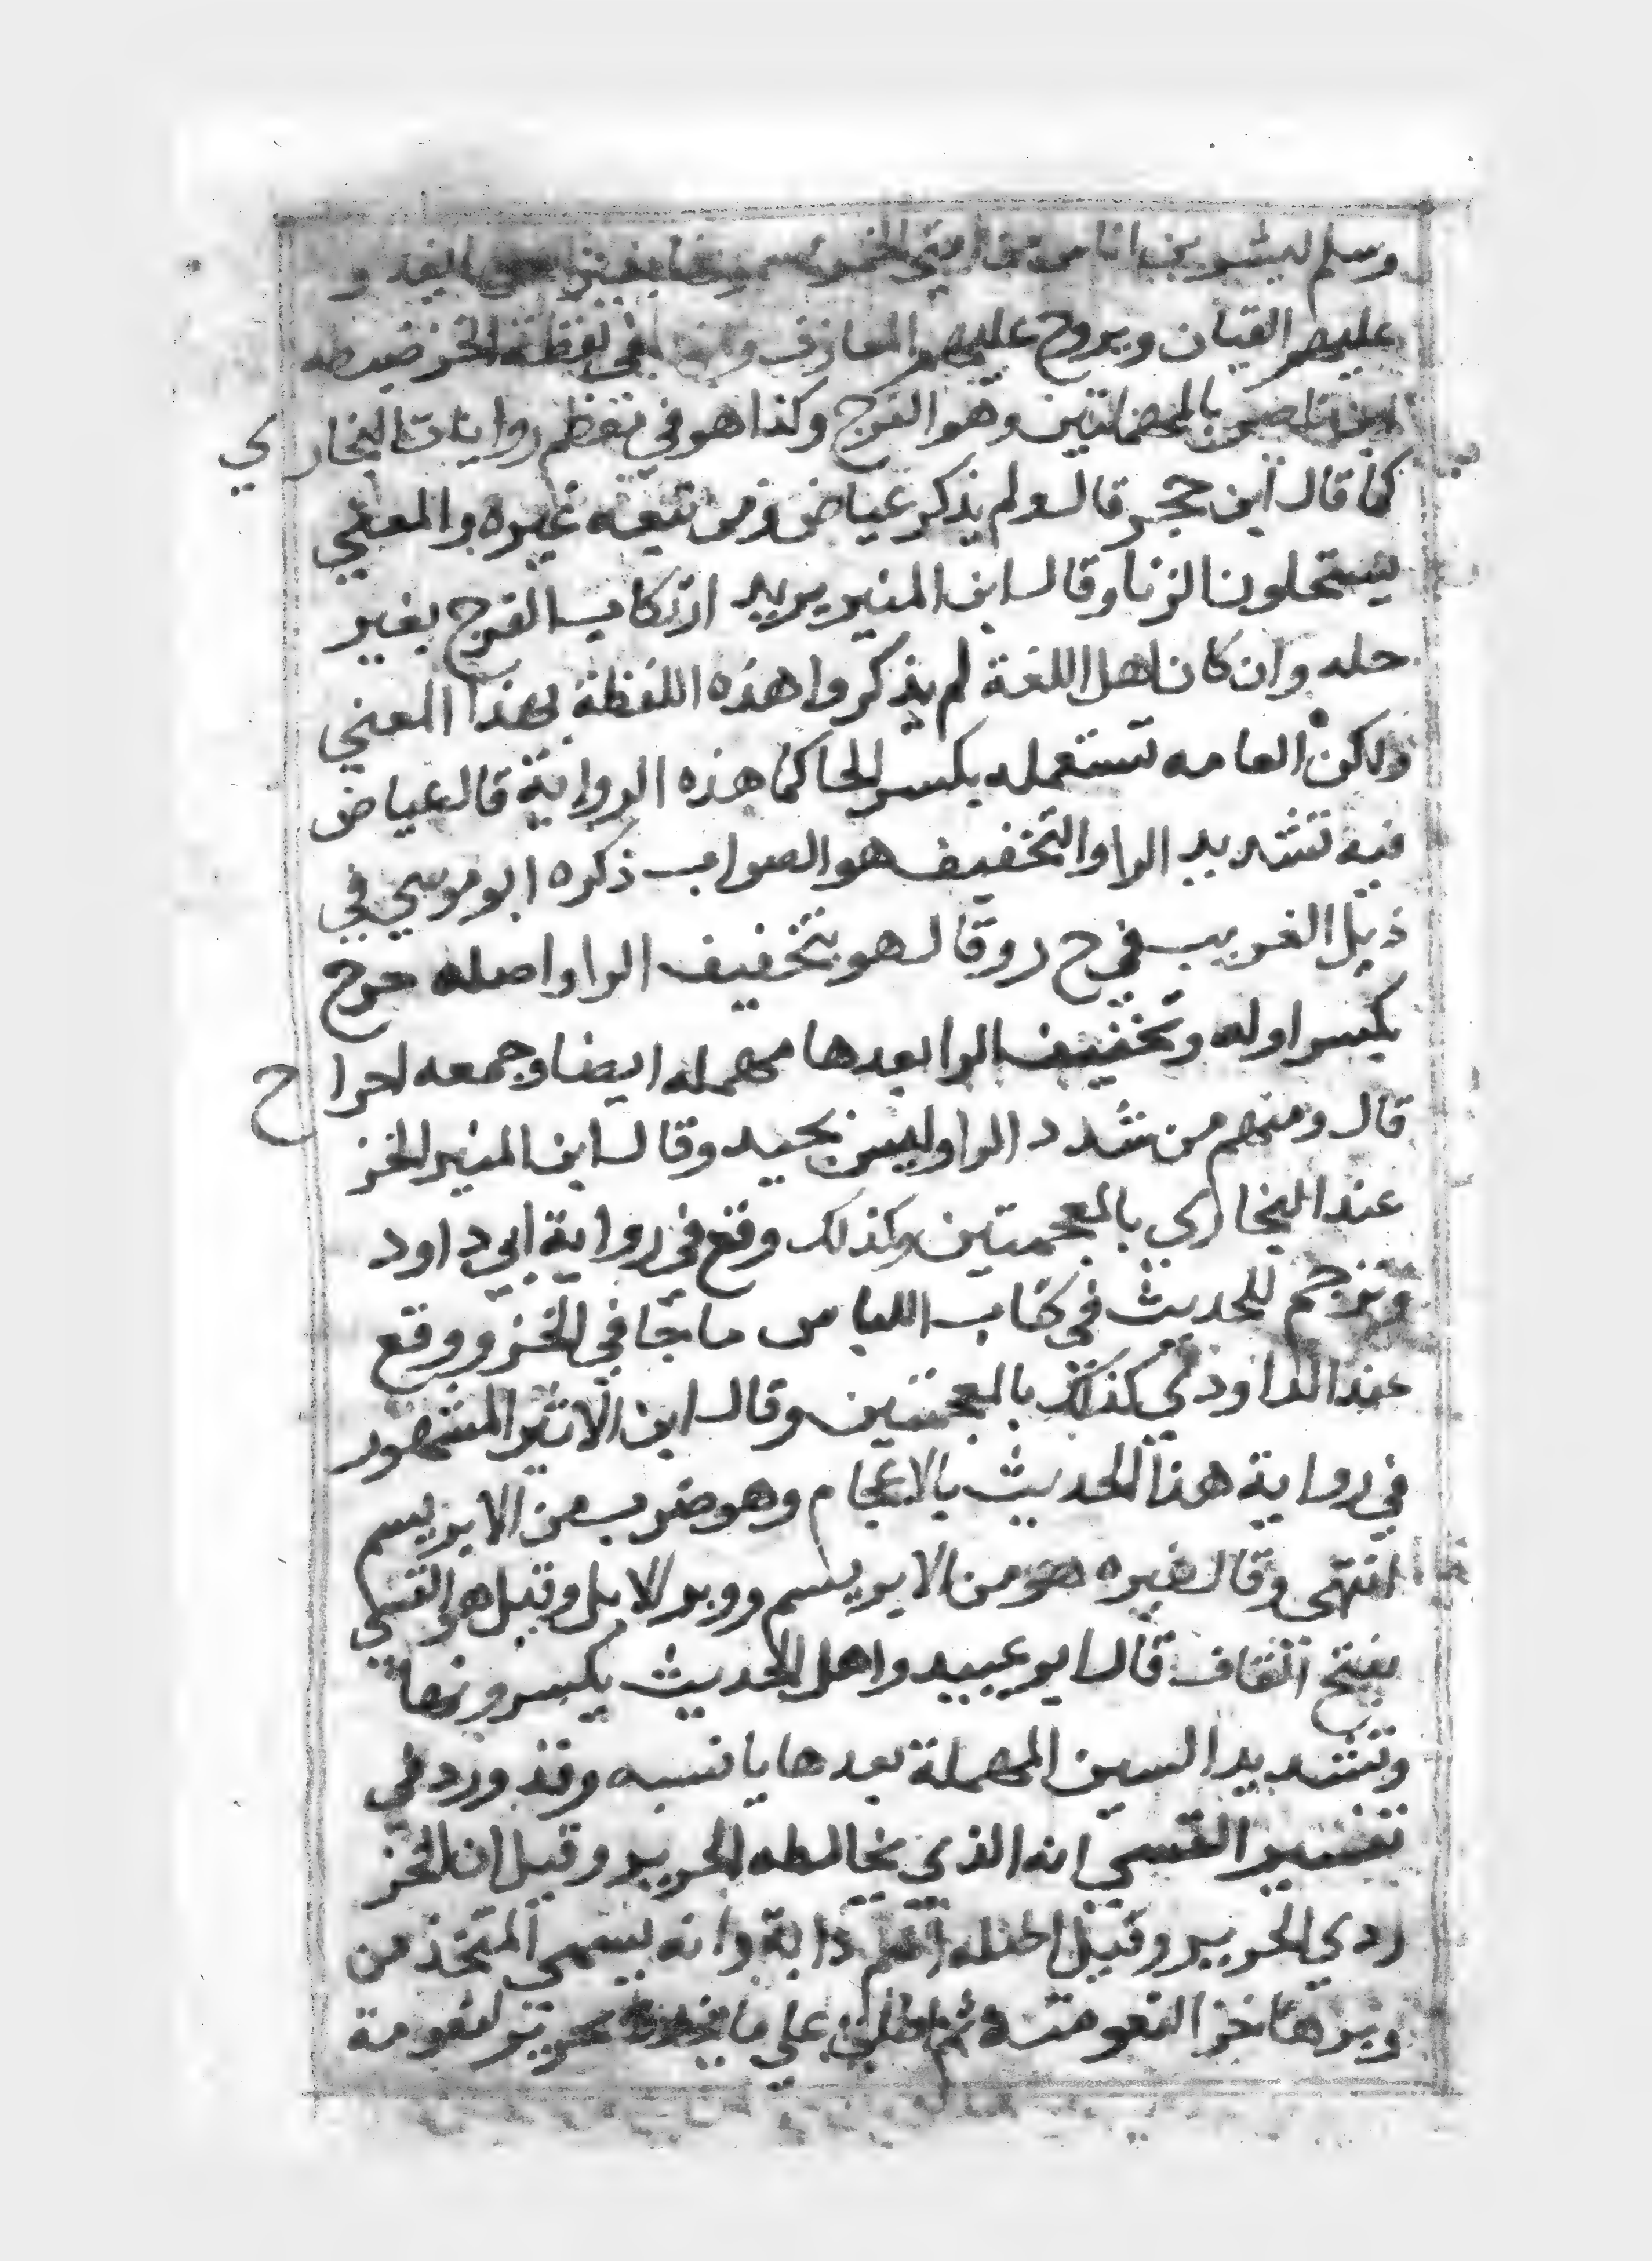 وسلم ليشربن اناس من امتي الخمر يسمونها بغير اسمها يغدو
عليهم القيان ويروح عليهم المعازف في لفظة الخز ضبطه
ابن ناصر بالمهملتين وهو الفرج وكذا هو في معظم روايات البخاري
كما قال ابن حجر قال ولم يذكر عياض ومن تبعه غيره والمعني
يستحلون الزنا وقال ابن المنير يريد ارتكاب الفرج بغير
حله وان كان اهل اللغة لم يذكروا هذه اللفظة بهذا المعني
ولكن العامه تستعمله بكسر الحا كما هذه الرواية قال عياض
فيه تشديد الرا والتخفيف هو الصواب ذكره ابو موسي في
ذيل الغريب في ح ر وقال هو بتخفيف الرا واصله حرح
بكسر اوله وتخفيف الرا بعدها مهمله ايضا وجمعه احراح
قال ومنهم من شدد الرا وليس بجيد وقال ابن المنير الخز
عند البخاري بالمعجمتين وكذلك وقع في رواية ابي داود
وترجم للحديث في كتاب اللباس ما جا في الخز ووقع
عند الداودي كذلك بالمعجمتين وقال ابن الاثير المشهور
في رواية هذا الحديث بالاعجام وهو ضرب من الابريسم
انتهى وقال غيره هو من الابريسم ووبر الابل وقيل هو القسي
بفتح القاف قال ابو عبيد واهل الحديث يكسرونها
وتشديد السين المهملة بعدها يا نسبه وقد ورد في
تفسير القسي انه الذي يخالطه الحرير وقيل ان الخز
ردي الحرير وقيل اصله اسم دابة وانه يسمى المتخذ من
وبرها خزا لنعومته ثم اطلق علي ما لنعومة